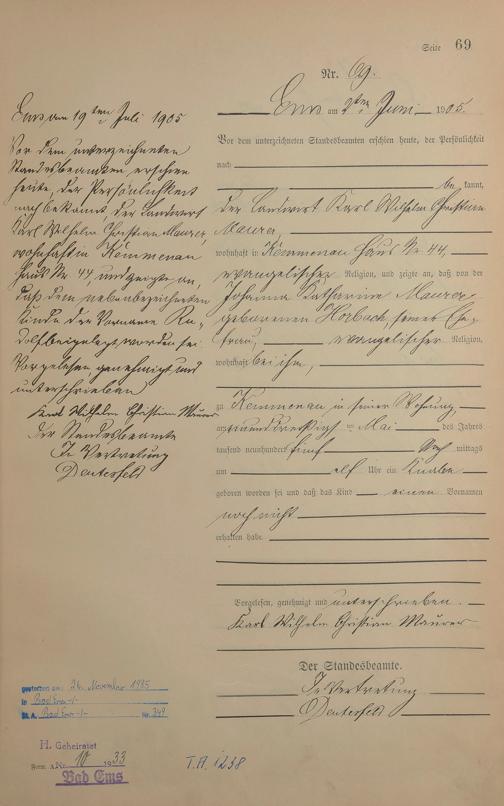 Seite 69
Nr. 69.
Ems am 2ten Juni 1905.
Vor dem unterzeichneten Standesbeamten erschien heute, der Persönlichkeit
nach
be kannt,
der Landwirt Karl Wilhelm Christian
Maurer,
wohnhaft in Kemmenau Haus Nr. 44,
evangelischer Religion, und zeigte an, daß von der
Johanna Katharina Maurer
geborenen Horbach, seiner Ehe-
frau, evangelischer Religion,
wohnhaft bei ihm,
zu Kemmenau in seiner Wohnung,
am einunddreißigsten Mai des Jahres
tausend neunhundert fünf Nach mittags
um elf Uhr ein Knabe
geboren worden sei und daß das Kind einen Vornamen
noch nicht
erhalten habe.
Vorgelesen, genehmigt und unterschrieben.
Karl Wilhelm Christian Maurer
Der Standesbeamte.
In Vertretung
Deuterfeld
Ems am 19ten Juli 1905
Vor dem unterzeichneten
Standesbeamten erschien
heute, der Persönlichkeit
nach bekannt, der Landwirt
Karl Wilhelm Christian Maurer,
wohnhaft in Kemmenau
Haus Nr. 44, und zeigte an,
daß dem nebenbezeichneten
Kinde der Vorname Ru-
dolf beigelegt worden sei
Vorgelesen, genehmigt und
unterschrieben
Karl Wilhelm Christian Maurer
Der Standesbeamte
In Vertretung
Deuterfeld
gestorben am: 26. November 1985
in Bad Ems
St. A. Bad Ems Nr. 349
H. Geheiratet
Nr. 10 1933
Bad Ems
T.A. 1238